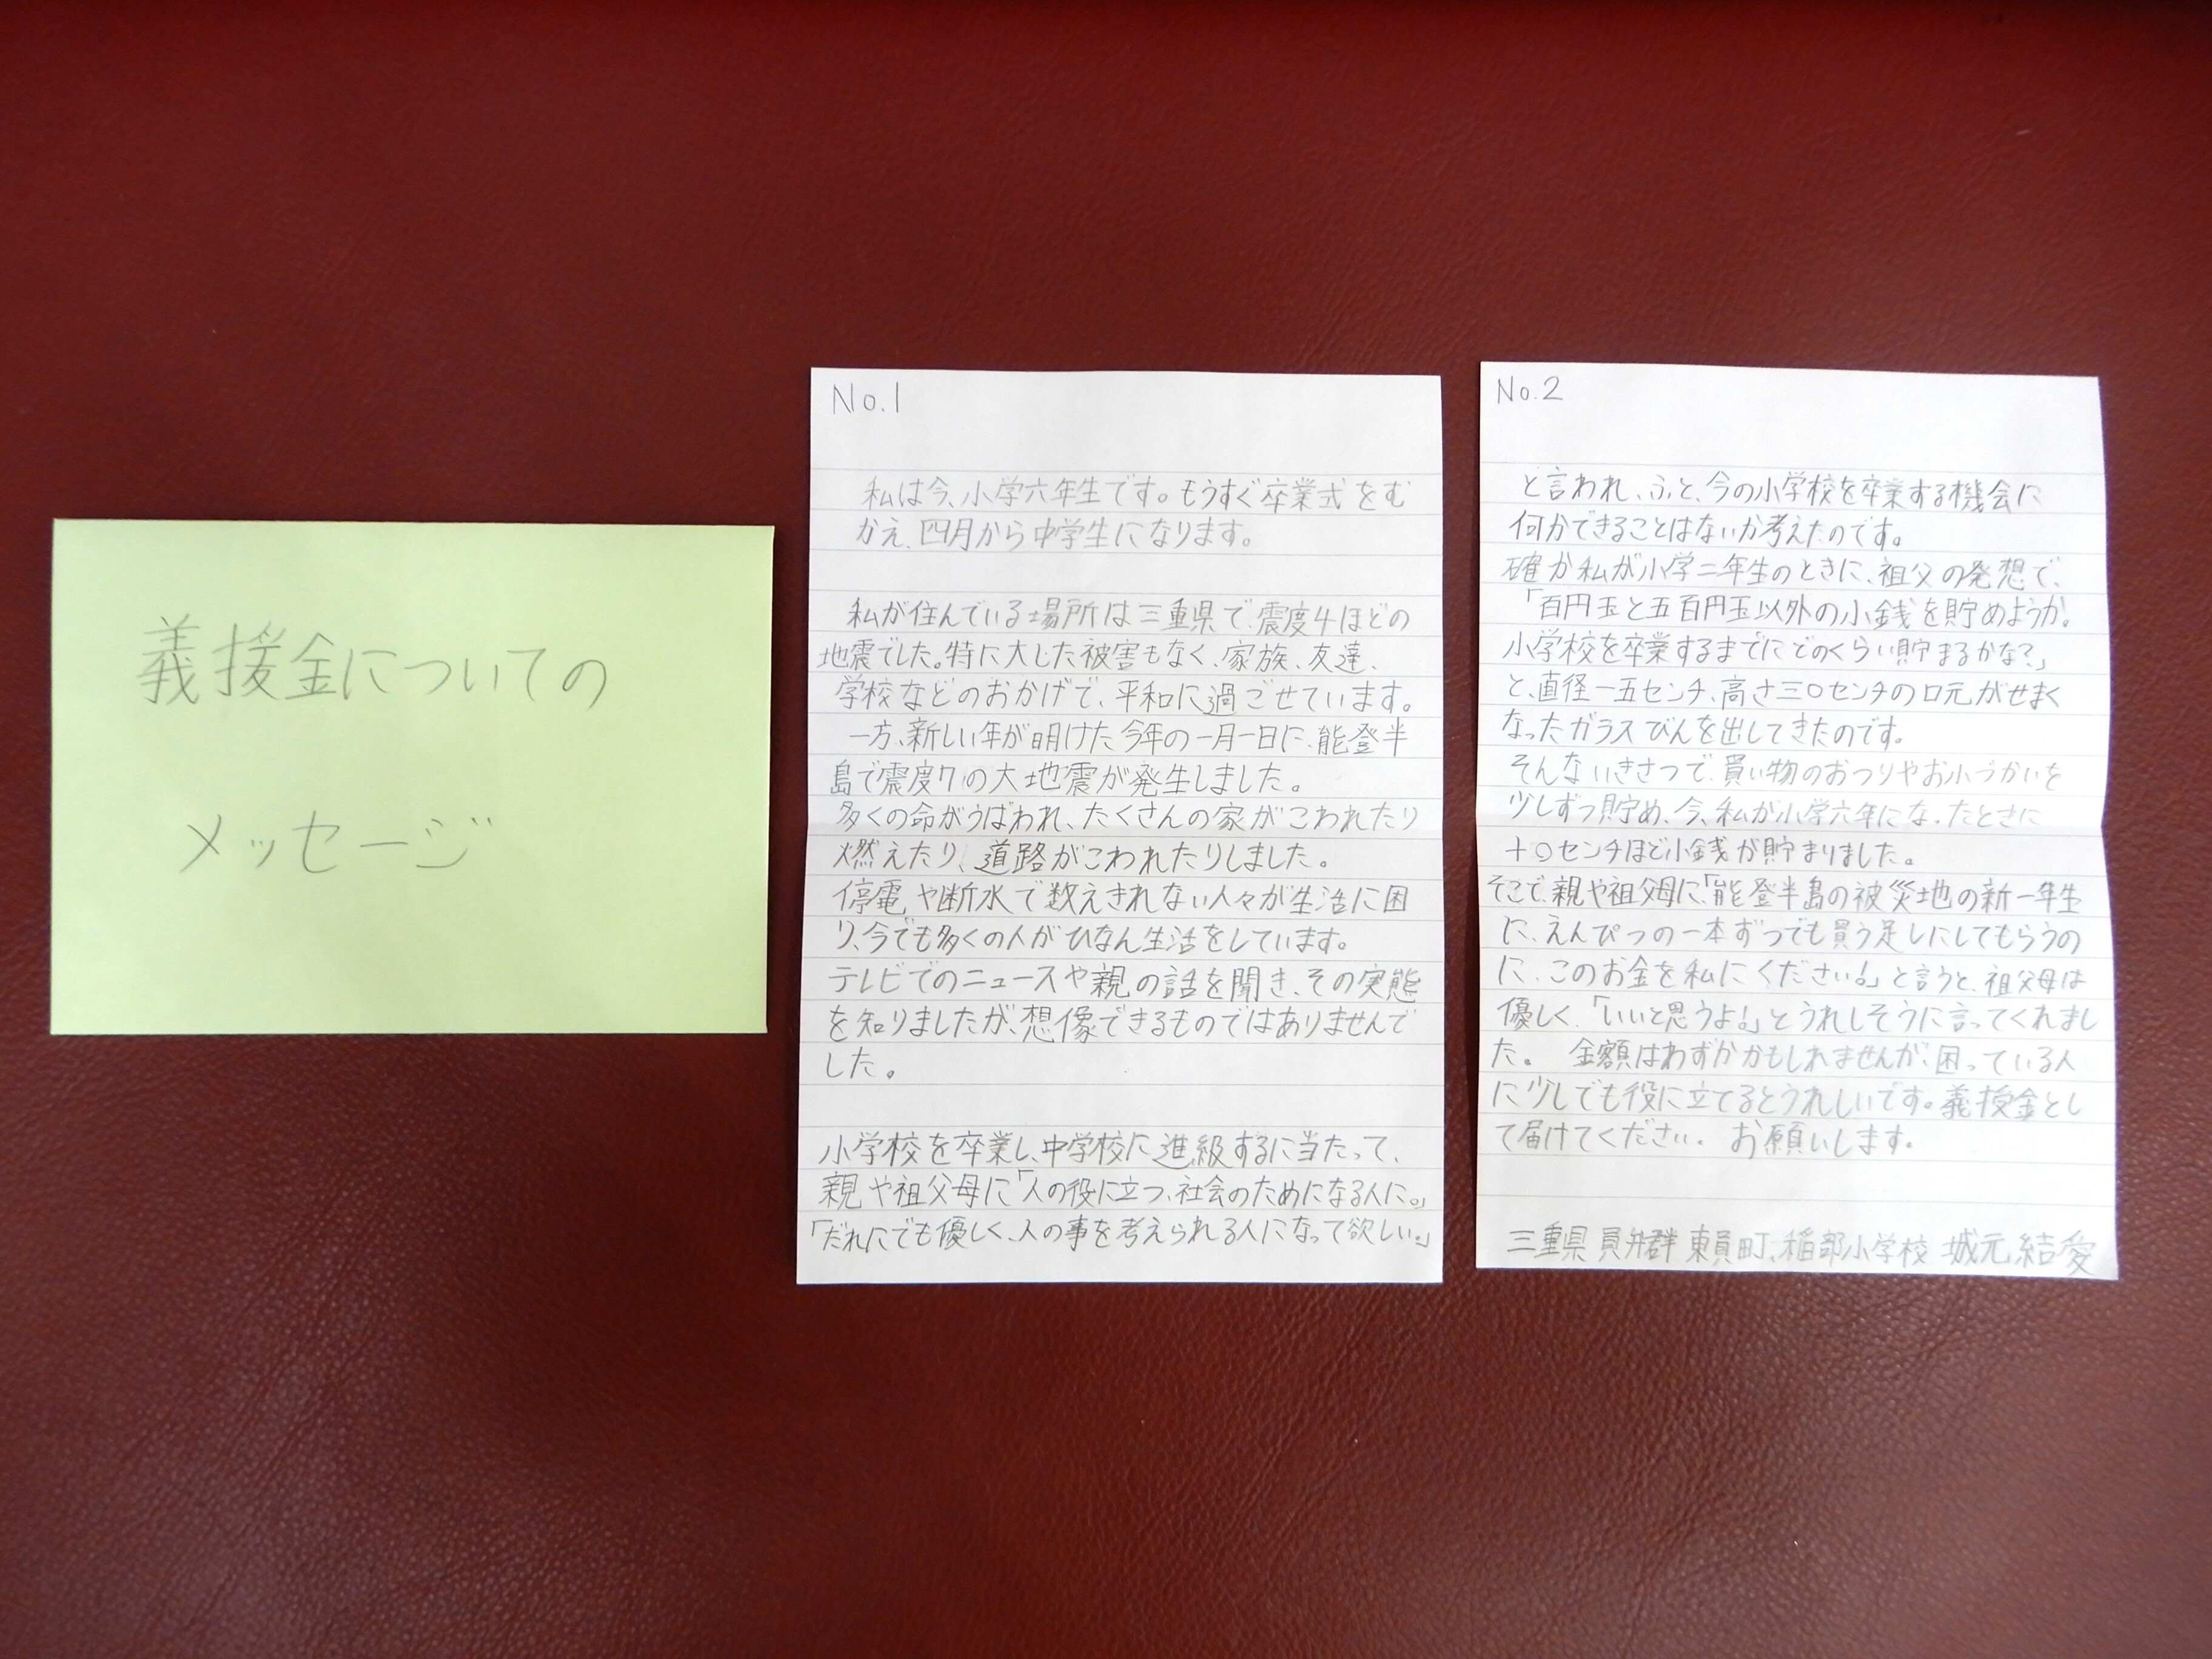 義援金についての
メッセージ
No.1
私は今、小学六年生です。もうすぐ卒業式をむ
かえ、四月から中学生になります。
私が住んでいる場所は三重県で、震度4ほどの
地震でした。特に大じた被害もなく、家族、友達、
学校などのおかげで、平和に過ごせています。
一方、新しい年が明けた今年の一月一日に、能登半
島で震度7の大地震が発生しました。
多くの命がうばわれ、たくさんの家がこわれたり
燃えたり、道路がこわれたりしました。
停電や断水で数えきれない人々が生活に困
り、今でも多くの人がひなん生活をしています。
テレビでのニュースや親の話を聞き、その実態
を知りましたが、想像できるものではありませんで
した。
小学校を卒業し、中学校に進級するに当たって、
親や祖父母に「人の役に立つ、社会のためになる人に。」
「だれにでも優しく、人の事を考えられる人になって欲しい。」
No.2
と言われ、ふと、今の小学校を卒業する機会に
何かできることはないか考えたのです。
確か私が小学二年生のときに、祖父の発想で、
「百円玉と五百円玉以外の小銭を貯めようか。
小学校を卒業するまでにどのくらい貯まるかな?」
と、直径一五センチ、高さ三〇センチの口元がせまく
なったガラスびんを出してきたのです。
そんないきさつで、買い物のおつりやお小づかいを
少しずつ貯め、今、私が小学六年になったときに
十〇センチほど小銭が貯まりました。
そこで、親や祖父母に、「能登半島の被災地の新一年生
に、えんぴつの一本ずつでも買う足しにしてもらうの
に、このお金を私にください!」と言うと、祖父母は
優しく、「いいと思うよ!」とうれしそうに言ってくれまし
た。 金額はわずかかもしれませんが、困っている人
に少しでも役に立てるとうれしいです。義援金とし
て届けてください。 お願いします。
三重県 員弁群 東員町、稲部小学校 城元 結愛